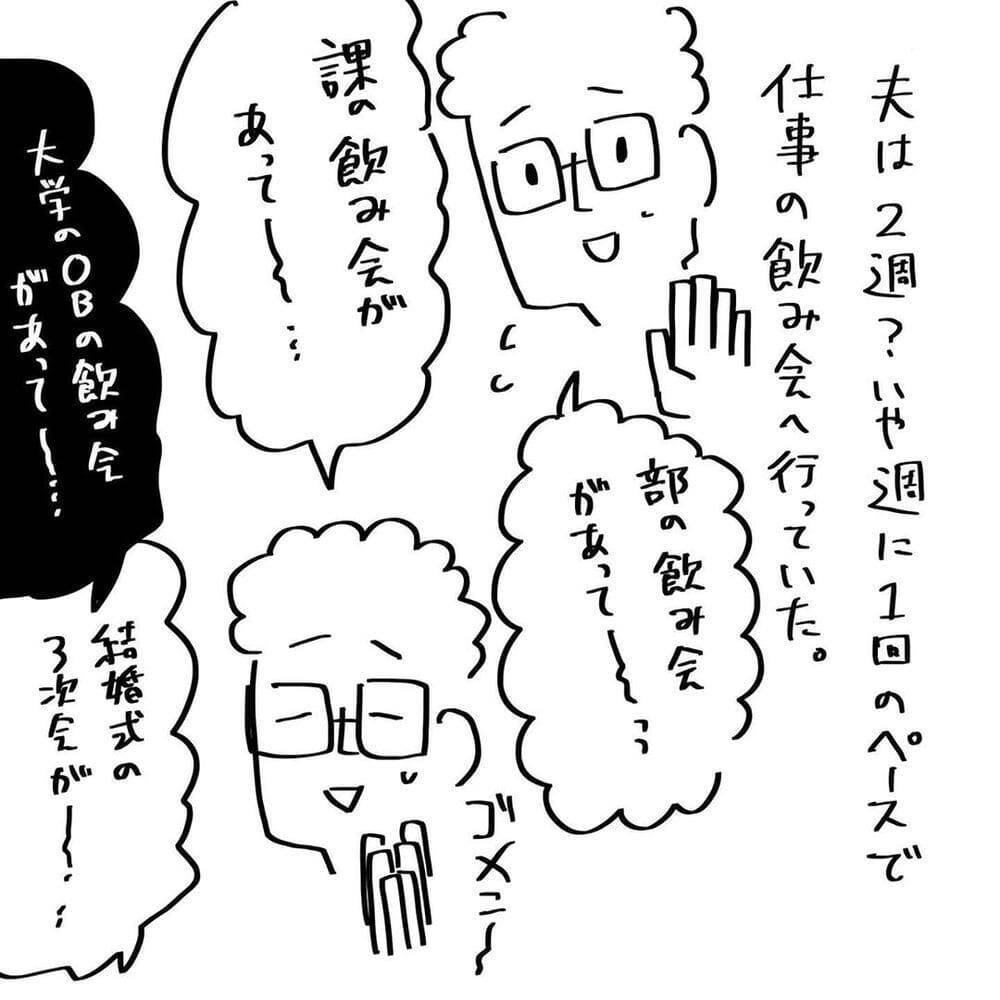 夫は2週?いや週に1回のペースで
仕事の飲み会へ行っていた。
部の飲み会
があって〜〜っ
課の飲み会が
あって〜〜…
ゴメンニ〜
大学のOBの飲み会
があって〜…
結婚式の
3次会が〜〜…